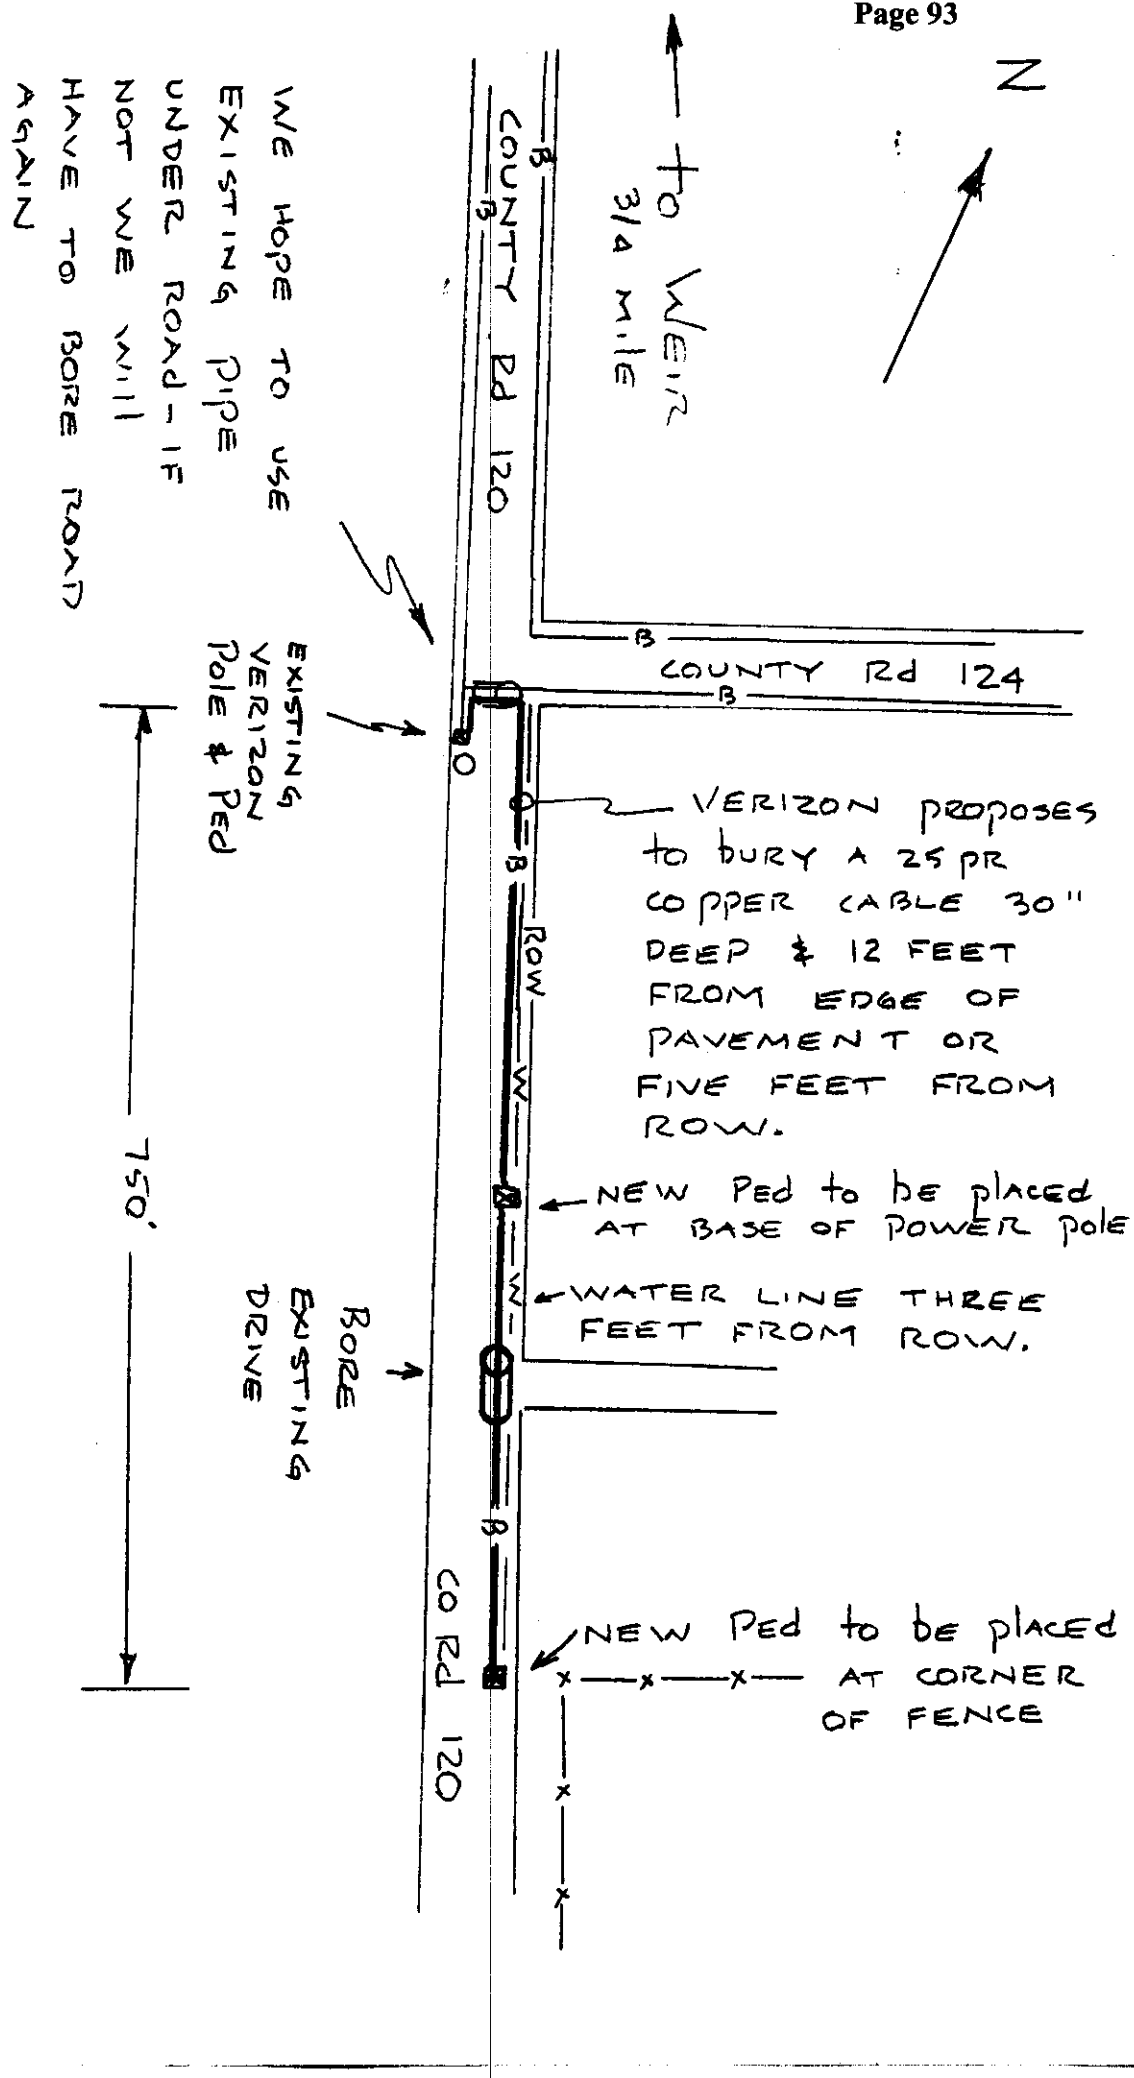 Page 93
N
to WEIR
3/4 MILE
B
COUNTY Rd 120
B
WE HOPE TO USE
EXISTING PIPE
UNDER ROAD-IF
NOT WE WILL
HAVE TO BORE ROAD
AGAIN
B
COUNTY Rd 124
B
EXISTING
VERIZON
POLE & PED
VERIZON PROPOSES
to bURY A 25 PR
COPPER CABLE 30"
DEEP & 12 FEET
FROM EDGE OF
PAVEMENT OR
FIVE FEET FROM
ROW.
B
ROW
W
NEW PEd to be plACEd
AT BASE OF POWER POLE
W
WATER LINE THREE
FEET FROM ROW.
750'
BORE
EXISTING
DRIVE
B
CO Rd 120
NEW PEd to be plACEd
x x x AT CORNER
OF FENCE
x
x